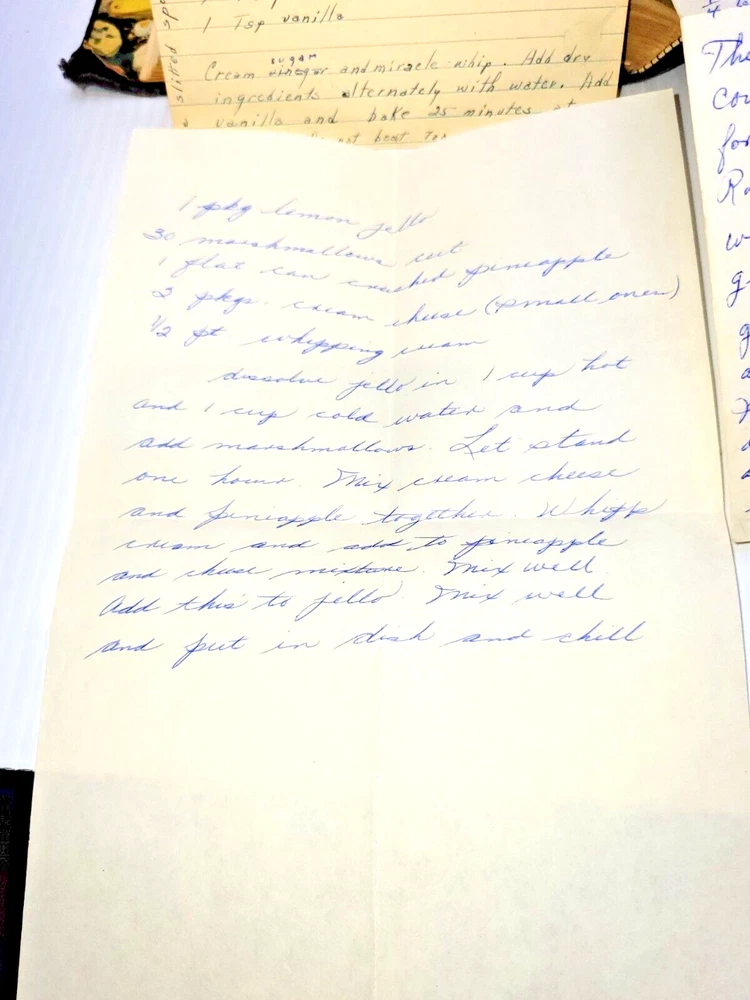 1 Tsp vanilla
sugar
Cream vinegar and miracle whip. Add dry
ingredients alternately with water. Add
vanilla and bake 25 minutes at
slitted
1 pkg lemon jello
30 marshmallows cut
1 flat can crushed pineapple
2 pkgs. cream cheese (small ones)
1/2 pt whipping cream
dissolve jello in 1 cup hot
and 1 cup cold water and
add marshmallows. Let stand
one hour. Mix cream cheese
and pineapple together. Whipp
cream and add to pineapple
and cheese mixture. Mix well.
Add this to jello. Mix well
and put in dish and chill
1/4
for